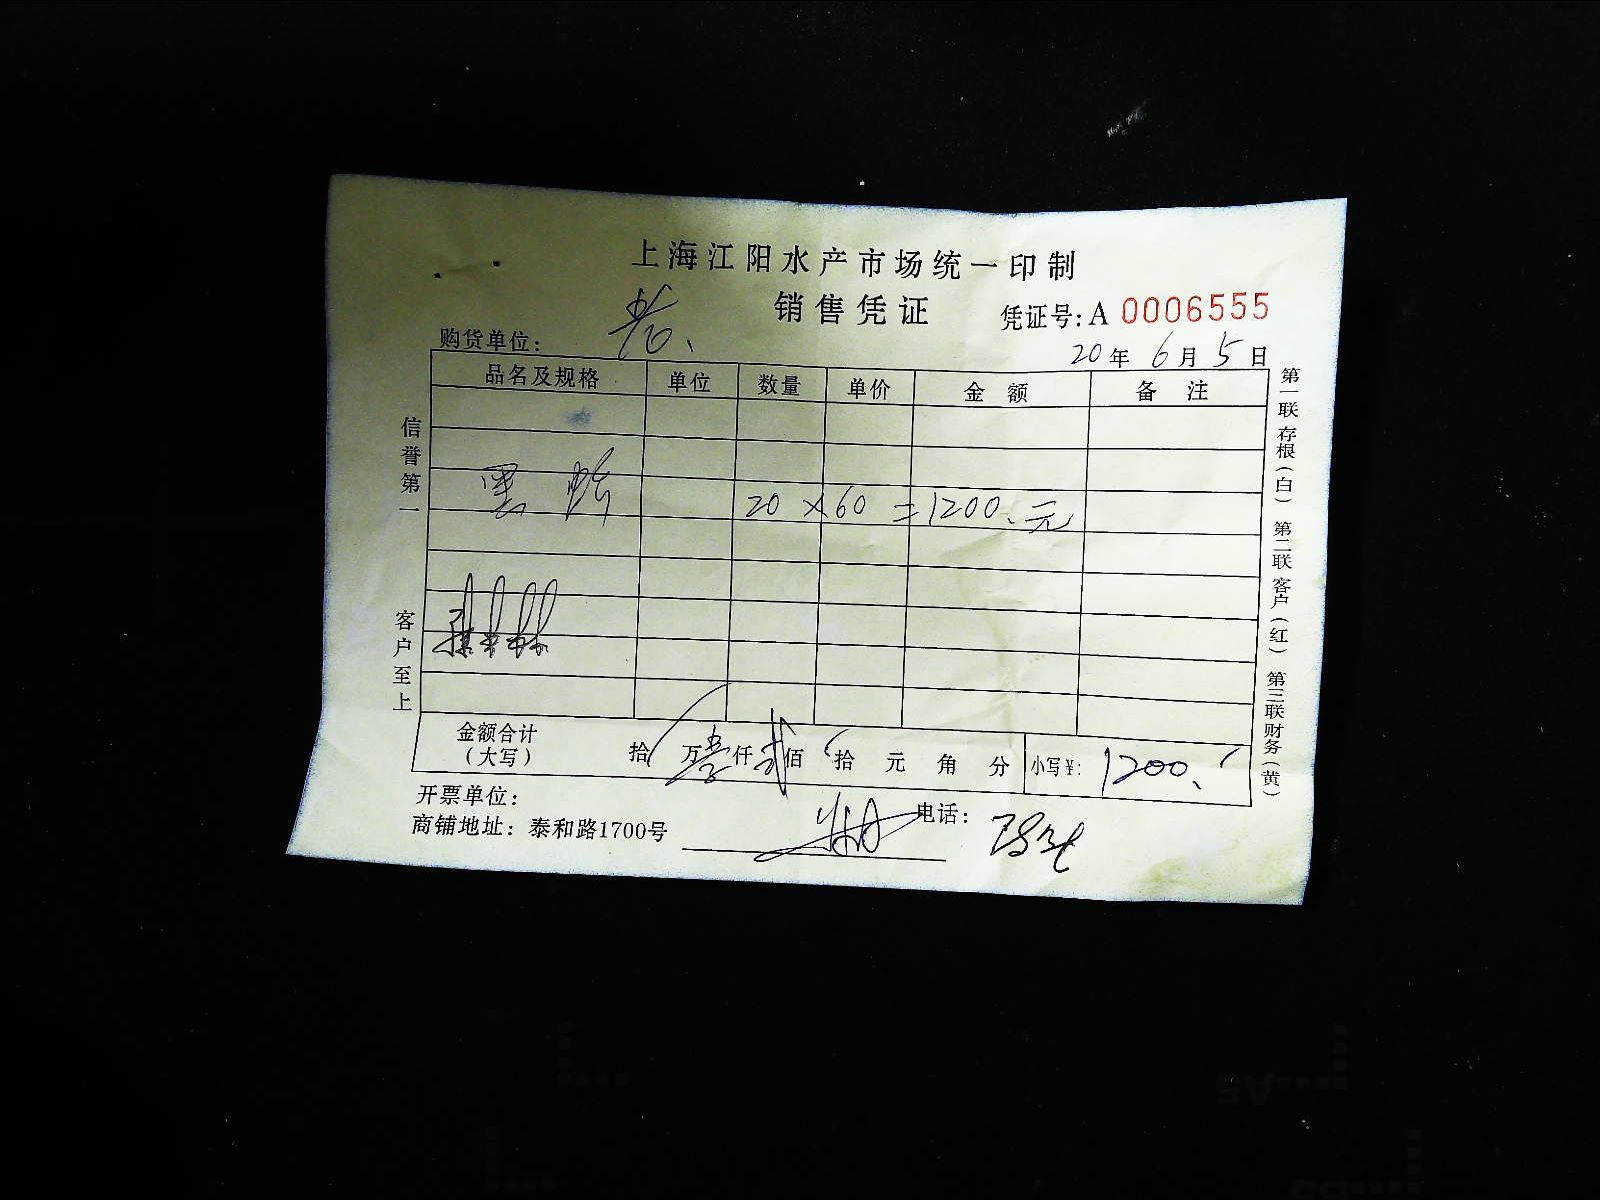 上海江阳水产市场统一印制
销售凭证
凭证号:A 0006555
购货单位:
20年 6月 5日
品名及规格 单位 数量 单价 金额 备注
黑 20 ×60 =1200.元
信誉第一
客户至上
金额合计(大写) 拾 万 壹仟 贰佰 拾 元 角 分 小写¥: 1200.
开票单位:
电话:
商铺地址:泰和路1700号
第一联存根(白) 第二联客户(红) 第三联财务(黄)